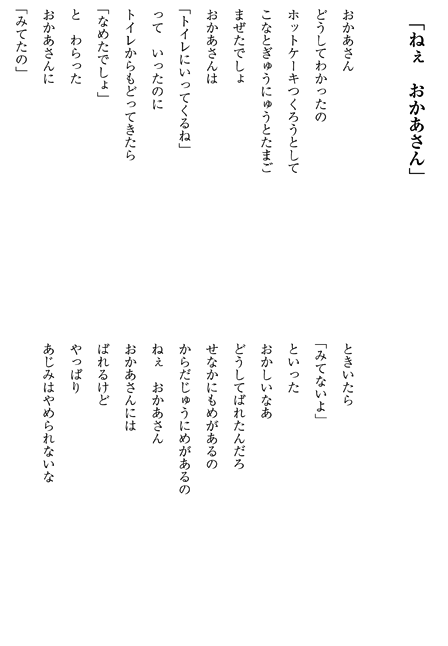 「ねぇ　おかあさん」
おかあさん
どうしてわかったの
ホットケーキつくろうとして
こなとぎゅうにゅうとたまご
まぜたでしょ
おかあさんは
「トイレにいってくるね」
って　いったのに
トイレからもどってきたら
「なめたでしょ」
と　わらった
おかあさんに
「みてたの」
ときいたら
「みてないよ」
といった
おかしいなあ
どうしてばれたんだろ
せなかにもめがあるの
からだじゅうにめがあるの
ねぇ　おかあさん
おかあさんには
ばれるけど
やっぱり
あじみはやめられないな